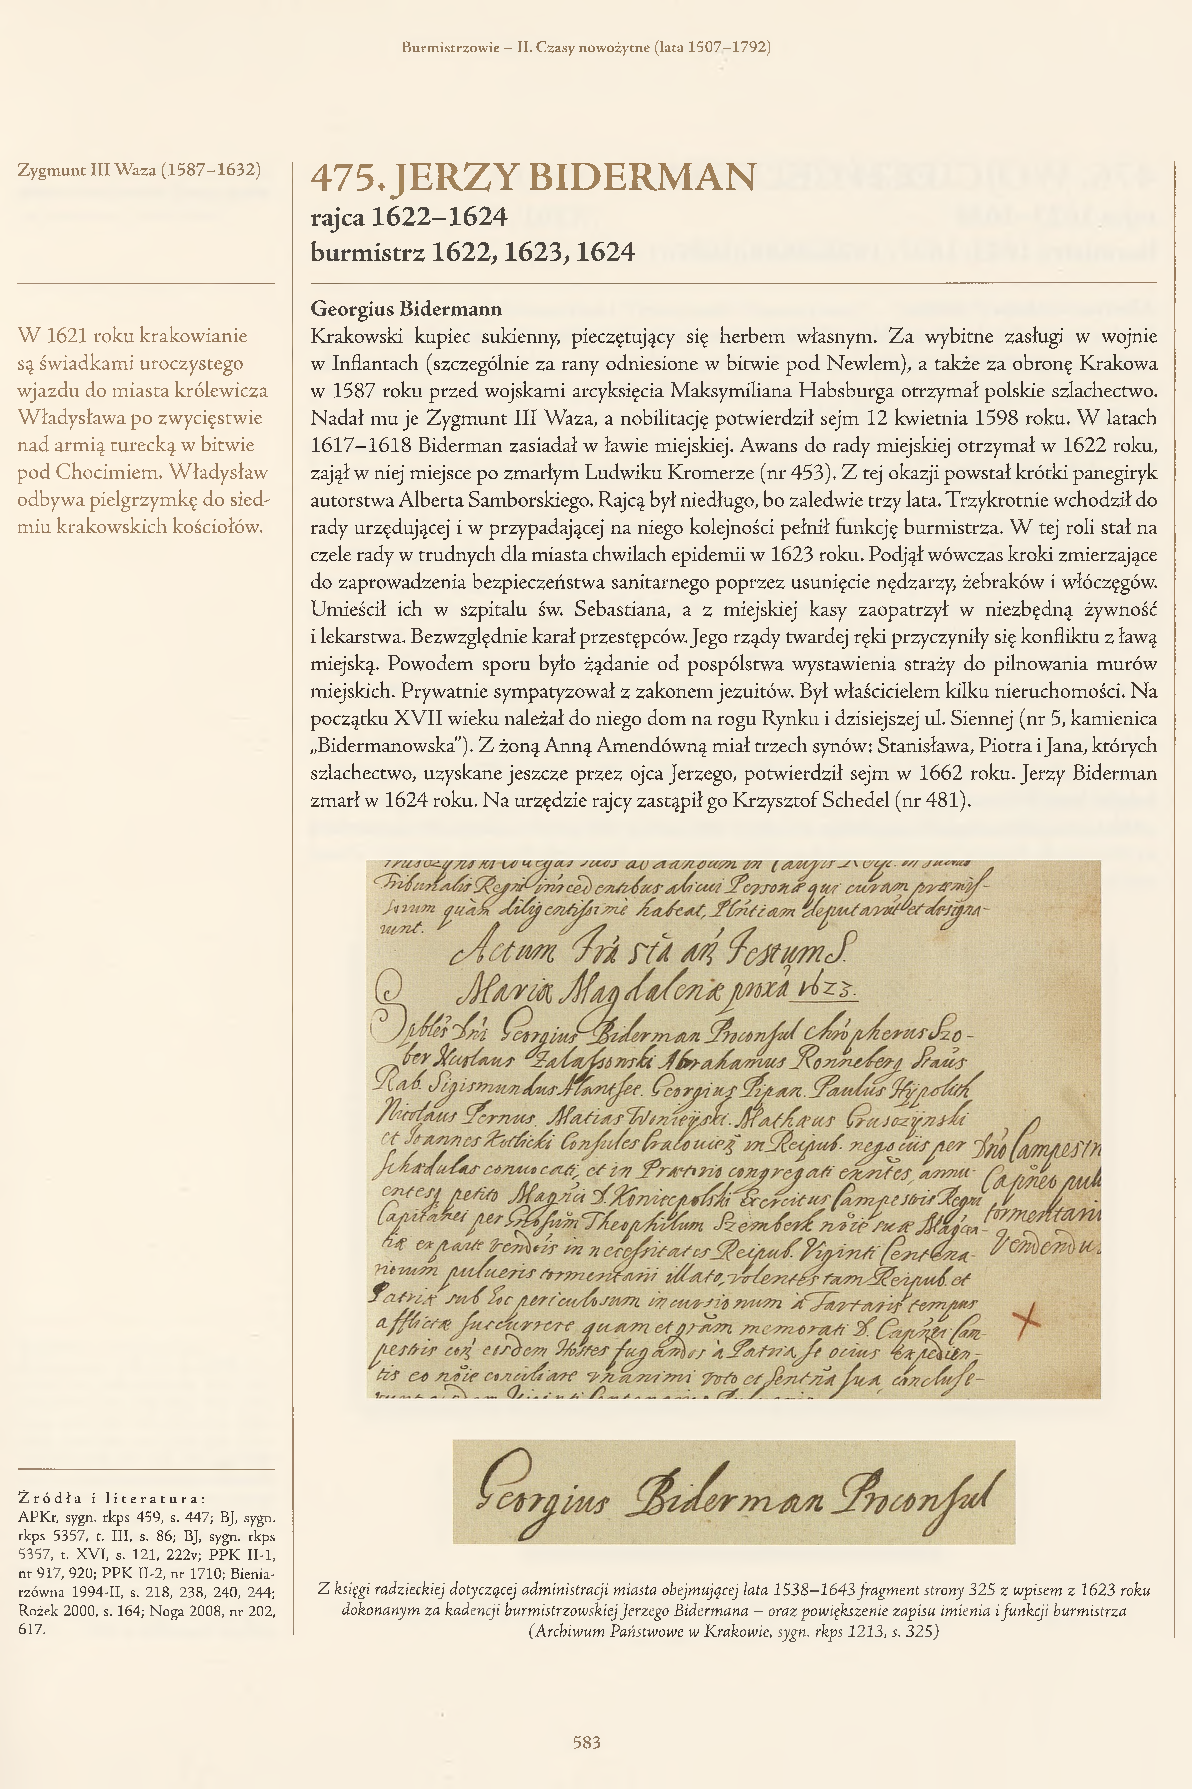 Burmistrzowie – II. Czasy nowożytne (lata 1507–1792)
Zygmunt III Waza (1587–1632)
W 1621 roku krakowianie
są świadkami uroczystego
wjazdu do miasta królewicza
Władysława po zwycięstwie
nad armią turecką w bitwie
pod Chocimiem. Władysław
odbywa pielgrzymkę do sied-
miu krakowskich kościołów.
Źródła i literatura:
APKr, sygn. rkps 459, s. 447; BJ, sygn.
rkps 5357, t. III, s. 86; BJ, sygn. rkps
5357, t. XVI, s. 121, 222v; PPK II-1,
nr 917, 920; PPK II-2, nr 1710; Bienia-
rzówna 1994-II, s. 218, 238, 240, 244;
Rożek 2000, s. 164; Noga 2008, nr 202,
617.
475. JERZY BIDERMAN
rajca 1622–1624
burmistrz 1622, 1623, 1624
Georgius Bidermann
Krakowski kupiec sukienny, pieczętujący się herbem własnym. Za wybitne zasługi w wojnie
w Inflantach (szczególnie za rany odniesione w bitwie pod Newlem), a także za obronę Krakowa
w 1587 roku przed wojskami arcyksięcia Maksymiliana Habsburga otrzymał polskie szlachectwo.
Nadał mu je Zygmunt III Waza, a nobilitację potwierdził sejm 12 kwietnia 1598 roku. W latach
1617–1618 Biderman zasiadał w ławie miejskiej. Awans do rady miejskiej otrzymał w 1622 roku,
zajął w niej miejsce po zmarłym Ludwiku Kromerze (nr 453). Z tej okazji powstał krótki panegiryk
autorstwa Alberta Samborskiego. Rajcą był niedługo, bo zaledwie trzy lata. Trzykrotnie wchodził do
rady urzędującej i w przypadającej na niego kolejności pełnił funkcję burmistrza. W tej roli stał na
czele rady w trudnych dla miasta chwilach epidemii w 1623 roku. Podjął wówczas kroki zmierzające
do zaprowadzenia bezpieczeństwa sanitarnego poprzez usunięcie nędzarzy, żebraków i włóczęgów.
Umieścił ich w szpitalu św. Sebastiana, a z miejskiej kasy zaopatrzył w niezbędną żywność
i lekarstwa. Bezwzględnie karał przestępców. Jego rządy twardej ręki przyczyniły się konfliktu z ławą
miejską. Powodem sporu było żądanie od pospólstwa wystawienia straży do pilnowania murów
miejskich. Prywatnie sympatyzował z zakonem jezuitów. Był właścicielem kilku nieruchomości. Na
początku XVII wieku należał do niego dom na rogu Rynku i dzisiejszej ul. Siennej (nr 5, kamienica
„Bidermanowska”). Z żoną Anną Amendówną miał trzech synów: Stanisława, Piotra i Jana, których
szlachectwo, uzyskane jeszcze przez ojca Jerzego, potwierdził sejm w 1662 roku. Jerzy Biderman
zmarł w 1624 roku. Na urzędzie rajcy zastąpił go Krzysztof Schedel (nr 481).
Tribunalis Regni alicui Personæ qui curam præmis-
sorum quàm diligentissimè habeat, deputarut et designa-
runt.
Actum Festum S.
Mariæ Magdalenæ proxa 1623.
Georgius Biderman Proconsul Szo-
ber Abrahamus Ronneberg
Georgius Pipan. Paulus Hypolith
Nicolaus Pernus. Matias Mathæus Grusozynski
et Joannes Consules in Reipub. negociis per
Schædulas conuocati, et in Prætorio congregati
petito Exercitus Campestris Regni
per Theophilum Szemberk
in necessitates Reipub. Viginti Centena-
riorum pulueris tormentarii illato, volentes tam Reipub. et
Patriæ sub hoc periculosum incursionum à Tartaris tempus
afflictæ succurrere quam et memorati
Hostes fugandos à Patria se ocius expedien-
tis eo conciliare vnanimi voto et sua, concluse-
tormentarii
Georgius Biderman Proconsul
Z księgi radzieckiej dotyczącej administracji miasta obejmującej lata 1538–1643 fragment strony 325 z wpisem z 1623 roku
dokonanym za kadencji burmistrzowskiej Jerzego Bidermana – oraz powiększenie zapisu imienia i funkcji burmistrza
(Archiwum Państwowe w Krakowie, sygn. rkps 1213, s. 325)
583